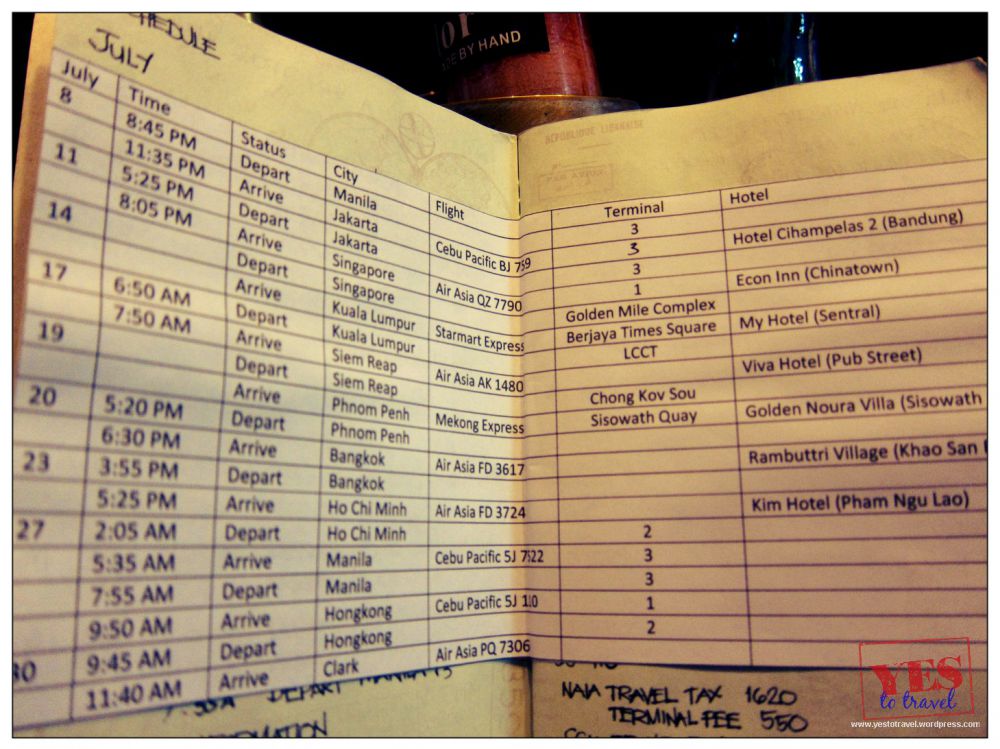 SCHEDULE
JULY
DE BY HAND
REPUBLIQUE LIBANAISE
July Time Status City Flight Terminal Hotel
8 8:45 PM Depart Manila 3
11:35 PM Arrive Jakarta Cebu Pacific BJ 759 3 Hotel Cihampelas 2 (Bandung)
11 5:25 PM Depart Jakarta 3
8:05 PM Arrive Singapore Air Asia QZ 7790 1 Econ Inn (Chinatown)
14 Depart Singapore Golden Mile Complex
Arrive Kuala Lumpur Starmart Express Berjaya Times Square My Hotel (Sentral)
17 6:50 AM Depart Kuala Lumpur LCCT
7:50 AM Arrive Siem Reap Air Asia AK 1480 Viva Hotel (Pub Street)
19 Depart Siem Reap Chong Kov Sou
Arrive Phnom Penh Mekong Express Sisowath Quay Golden Noura Villa (Sisowath
20 5:20 PM Depart Phnom Penh
6:30 PM Arrive Bangkok Air Asia FD 3617 Rambuttri Village (Khao San
23 3:55 PM Depart Bangkok
5:25 PM Arrive Ho Chi Minh Air Asia FD 3724 Kim Hotel (Pham Ngu Lao)
27 2:05 AM Depart Ho Chi Minh 2
5:35 AM Arrive Manila Cebu Pacific 5J 7522 3
7:55 AM Depart Manila 3
9:50 AM Arrive Hongkong Cebu Pacific 5J 110 1
30 9:45 AM Depart Hongkong 2
11:40 AM Arrive Clark Air Asia PQ 7306
DEPART
NAIA TRAVEL TAX 1620
TERMINAL FEE 550
YES
to travel
www.yestotravel.wordpress.com